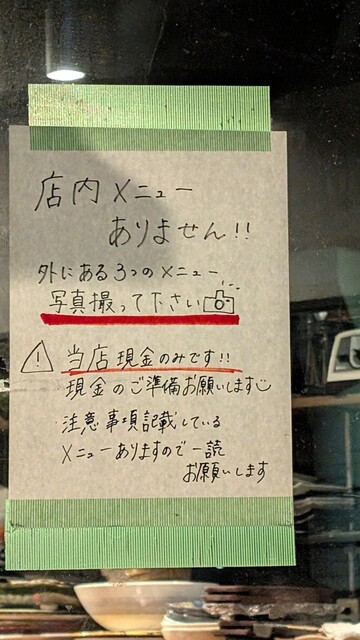 店内メニュー
ありません!!
外にある3つのメニュー
写真撮って下さい
当店現金のみです!!
現金のご準備お願いします
注意事項記載している
メニューありますので一読
お願いします